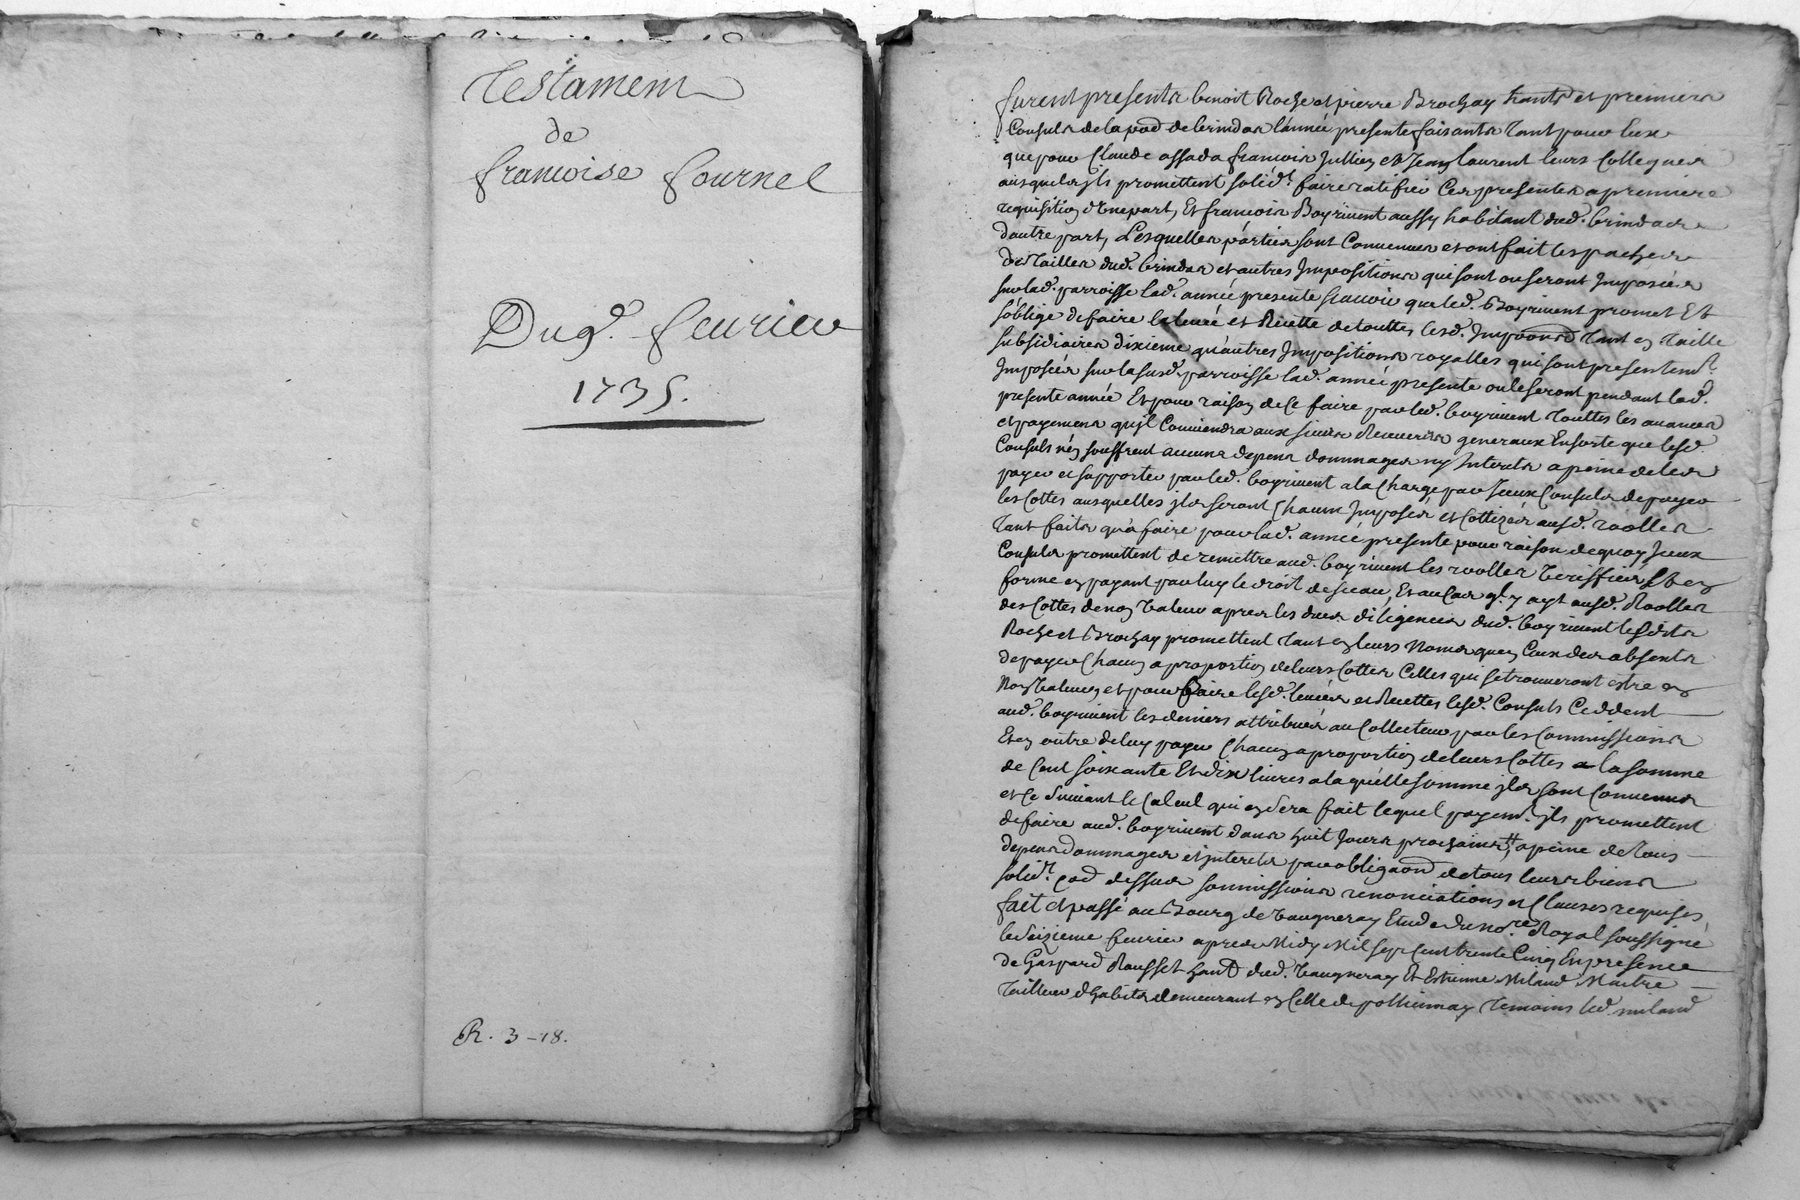 Testament
de
francoise fournel
Du 9e. feurier
1735.
R. 3 - 18.
furent presents benoit Roche et pierre Brochay hants et premiers
Consuls de la pod de brindas l'année presente faisants tant pour Eux
que pour Claude assada francois Jullien et Jean laurent leurs Collegues
ausquels jls promettent solidt. faire ratifier Ces presentes a premiere
requisition d'Vne part, Et francois Boyriuent aussy habitant dud. brindas
d'autre part, Lesquelles parties sont Conuenues et ont fait les paches
des tailles dud. brindas et autres Impositions qui sont ou seront Imposées
sur lad. parroisse lad. année presente scauoir que led. Boyriuent promet Et
s'oblige de faire la leueé et Recette de touttes lesd. Impoons tant en taille
subsidiaires dixieme qu'autres Impositions royalles qui sont presentemt.
Imposées sur la susd. parroisse lad. année presente ou le seront pendant lad.
presente année Et pour raison de Ce faire par led. boyriuent touttes les auances
et payemens qu'jl Conuiendra aux sieurs Receueurs generaux Ensorte que lesd.
Consuls n'en souffrent aucuns depens dommages ny Interets a peine de les
payer et supporter par led. boyriuent a la Charge par Jceux Consuls de payer
les Cottes ausquelles jls seront Chacun Imposés et Cottizés ausd. roolles
tant faits qu'a faire pour lad. année presente pour raison de quoy Jceux
Consuls promettent de remettre aud. boyriuent les roolles Veriffiés Et en
forme en payant par luy le droit de sceau, Et au Cas ql. y ayt ausd. Roolles
des Cottes de non Valeur apres les dues diligences dud. boyriuent lesdits
Roche et Brochay promettent tant en leurs Noms qu'en Ceux des absents
de payer Chacun a proportion de leurs Cottes Celles qui se trouueront estre en
Non Valeur, et pour faire lesd. leuées et Recettes lesd. Consuls Ceddent
aud. boyriuent les deniers attribués au Collecteur par les Commissions
Et en outre de luy payer Chacun a proportion de leurs Cottes la somme
de Cent soixante Et dix liures a laquelle somme jls sont Conuenus
et Ce suiuant le Calcul qui en sera fait lequel payemt. jls promettent
de faire aud. boyriuent dans huit Jours prochains a peine de tous
depens dommages et jnterets par obligaon de tous leurs biens
solidt. Cod dessus sommissions renonciations et Clauses requises
fait et passé au Bourg de Vaugneray Etude du nore. Royal soussigné
le seizieme feurier apres Midy Mil sept Cent trente Cinq En presence
de Gaspard Rousset hant dud. Vaugneray Et Estienne Milaud Maitre
tailleur d'habits demeurant en Celle de pollionnay temoins led milaud